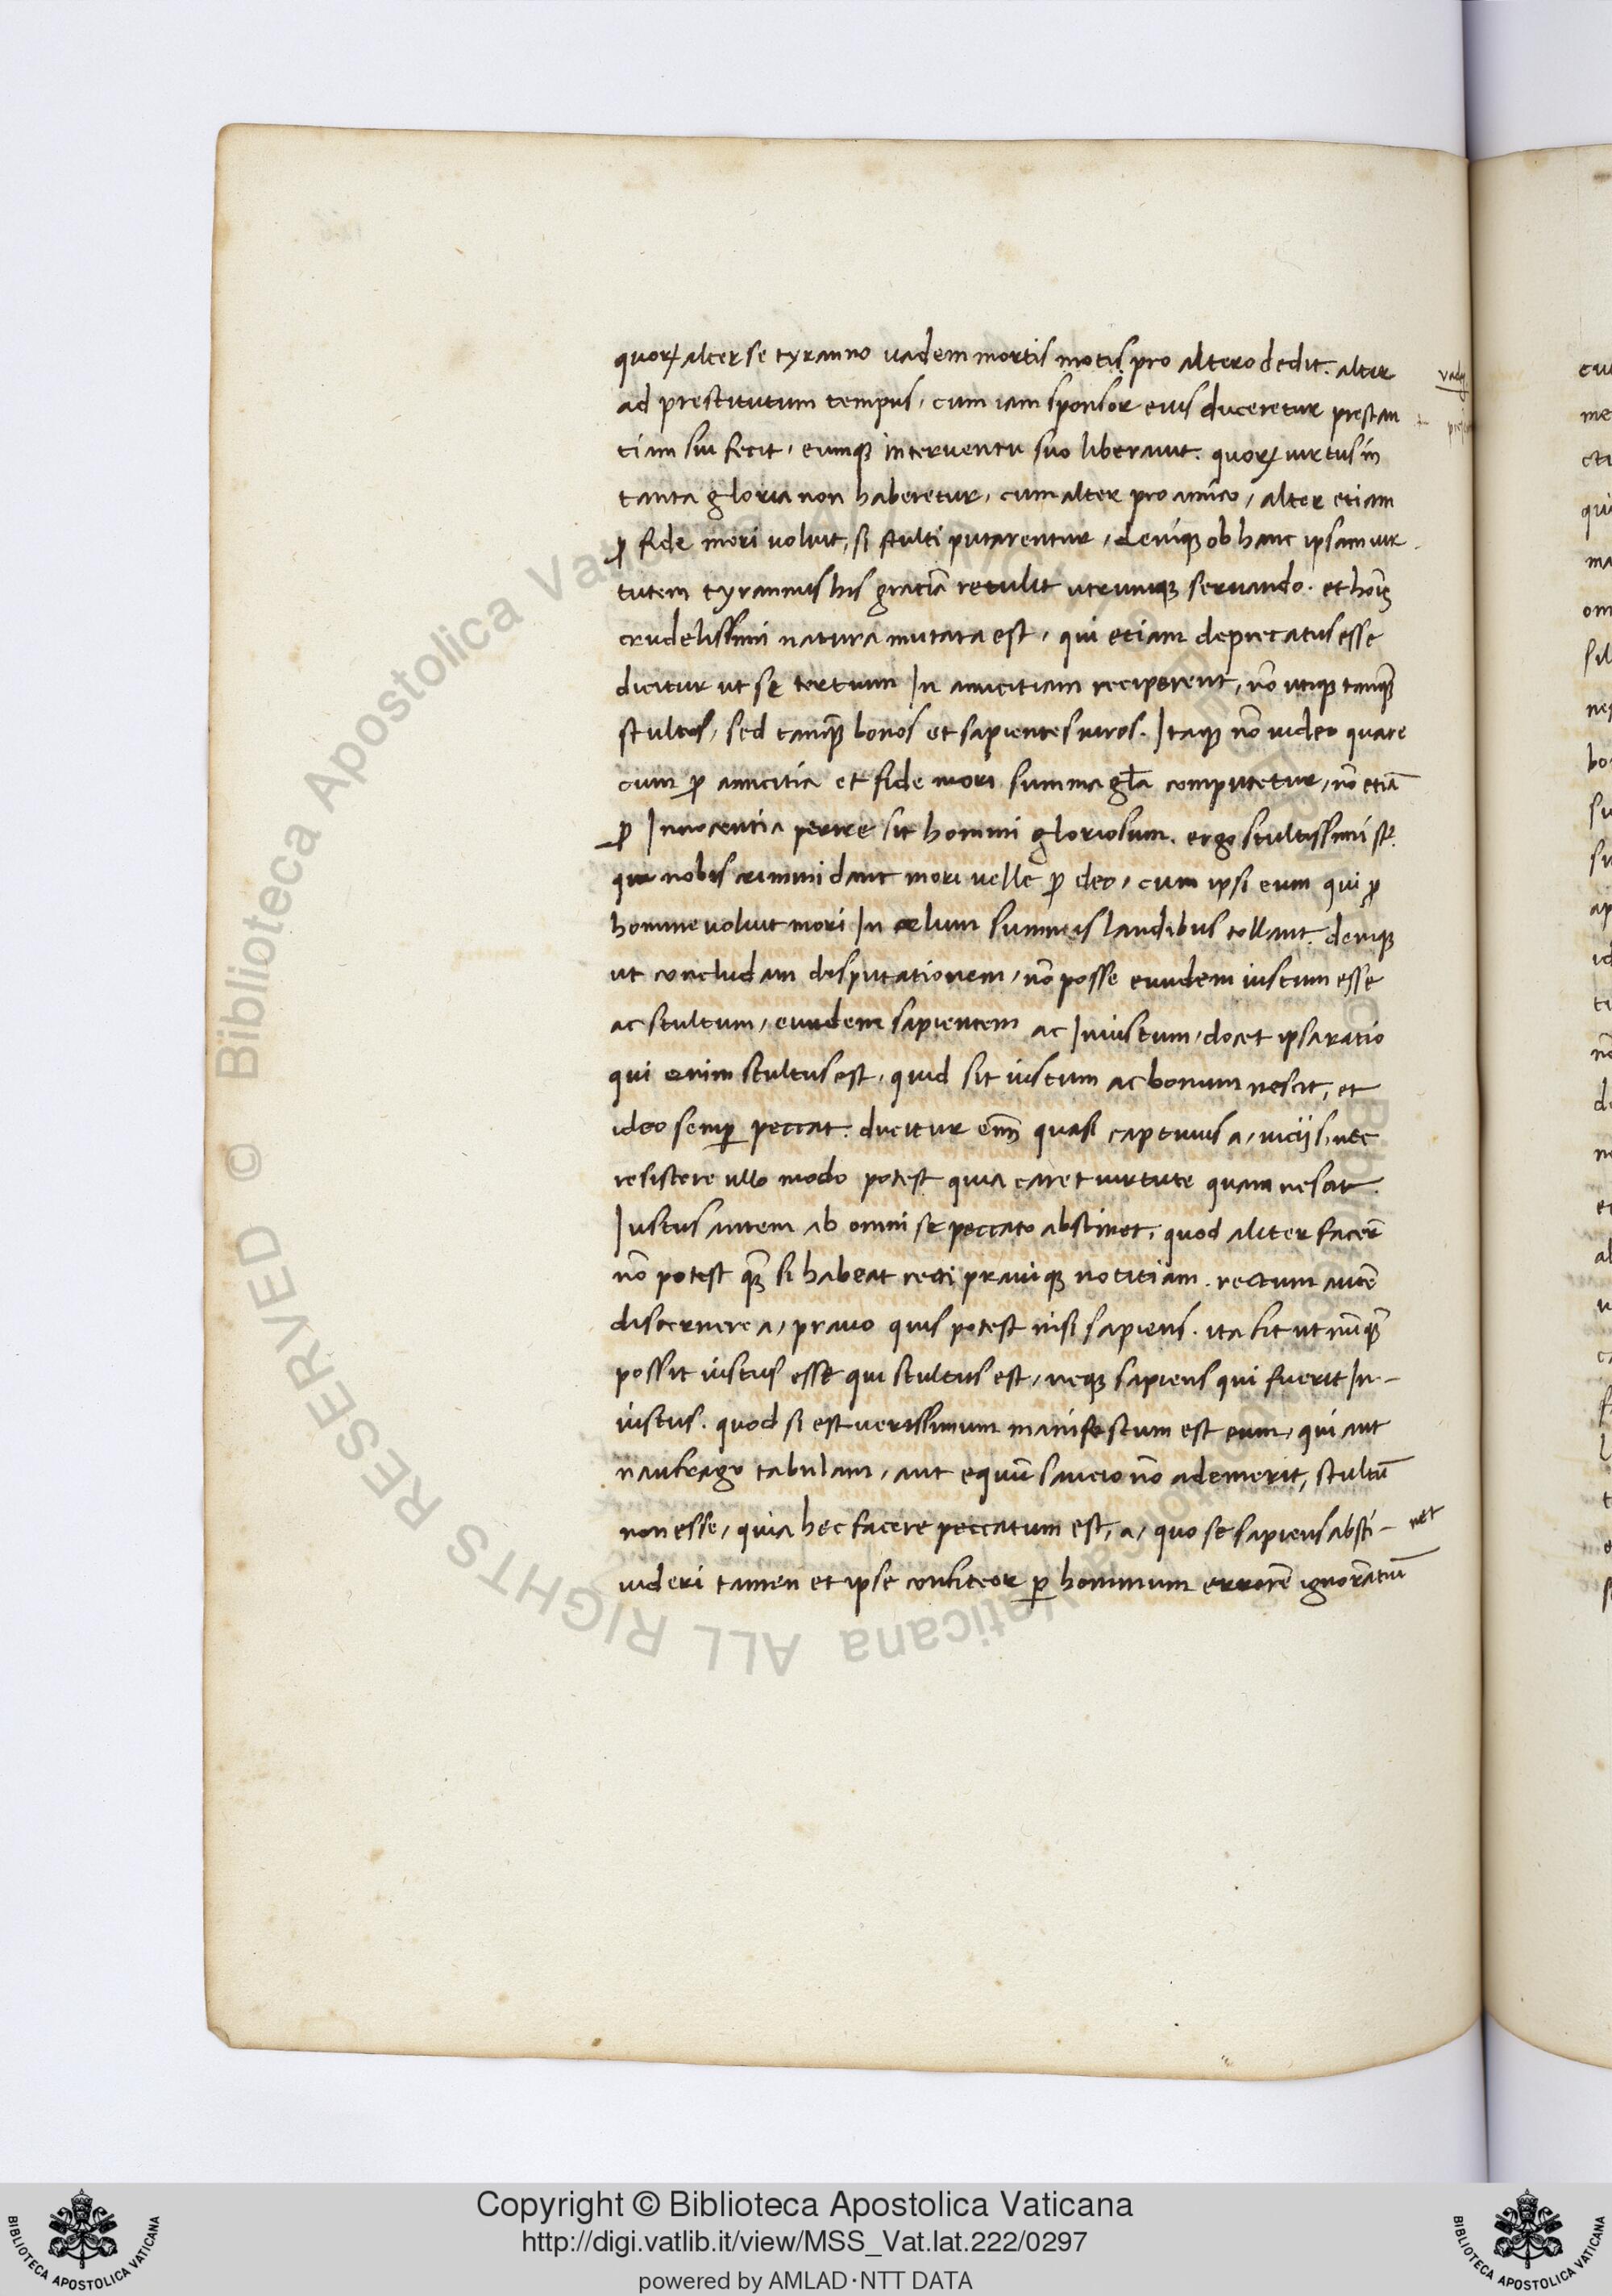 quoꝝ alter se tyranno uadem mortis motis pro altero dedit. alter
ad prestitutum tempus, cum iam sponsor eius duceretur prestan
tiam sui fecit, eumqꝫ interuentu suo liberauit. quoꝝ uirtus in
tanta gloria non haberetur, cum alter pro amico, alter etiam
ꝓ fide mori uoluit, si stulti putarentur, deniqꝫ ob hanc ipsam uir
tutem tyrannus his gratiā retulit utrumqꝫ seruando. et hoīs
crudelissimi natura mutata est, qui etiam deprecatus esse
dicitur ut se tertium In amicitiam reciperent, nō utiqꝫ tanqꝫ̄
stultos, sed tanqꝫ̄ bonos et sapientes uiros. Itaqꝫ nō uideo quare
cum ꝓ amicitia et fide mori summa gl̄a computetur, nō etiā
ꝓ Innocentia perire sit homini gloriosum. ergo stultissimi st̄.
qui nobis crimini dant mori uelle ꝓ deo, cum ipsi eum qui ꝓ
homine uoluit mori In cælum summis laudibus tollant. deniqꝫ
ut concludam disputationem, nō posse eundem iustum esse
ac stultum, eundem sapientem ac Iniustum, docet ipsa ratio
qui enim stultus est, quid sit iustum ac bonum nescit, et
ideo semꝑ peccat. ducitur enī quasi captiuus a, uicijs, nec
resistere ullo modo potest quia caret uirtute quam nescit.
Iustus autem ab omni se peccato abstinet, quod aliter facer̄
nō potest qꝫ̄ si habeat recti prauiqꝫ notitiam. rectum autē
discernere a, prauo quis potest nisi sapiens. ita fit ut nūqꝫ̄
possit iustus esse qui stultus est, neqꝫ sapiens qui fuerit In-
iustus. quod si est uerissimum manifestum est eum, qui aut
naufrago tabulam, aut equū saucio nō ademerit, stultū
non esse, quia hec facere peccatum est, a, quo se sapiens absti- net
uideri tamen et ipse confiteor ꝑ hominum errorē ignorātiū
Copyright © Biblioteca Apostolica Vaticana
http://digi.vatlib.it/view/MSS_Vat.lat.222/0297
powered by AMLAD·NTT DATA
BIBLIOTECA APOSTOLICA VATICANA
BIBLIOTECA APOSTOLICA VATICANA
© Biblioteca Apostolica Vaticana ALL RIGHTS RESERVED